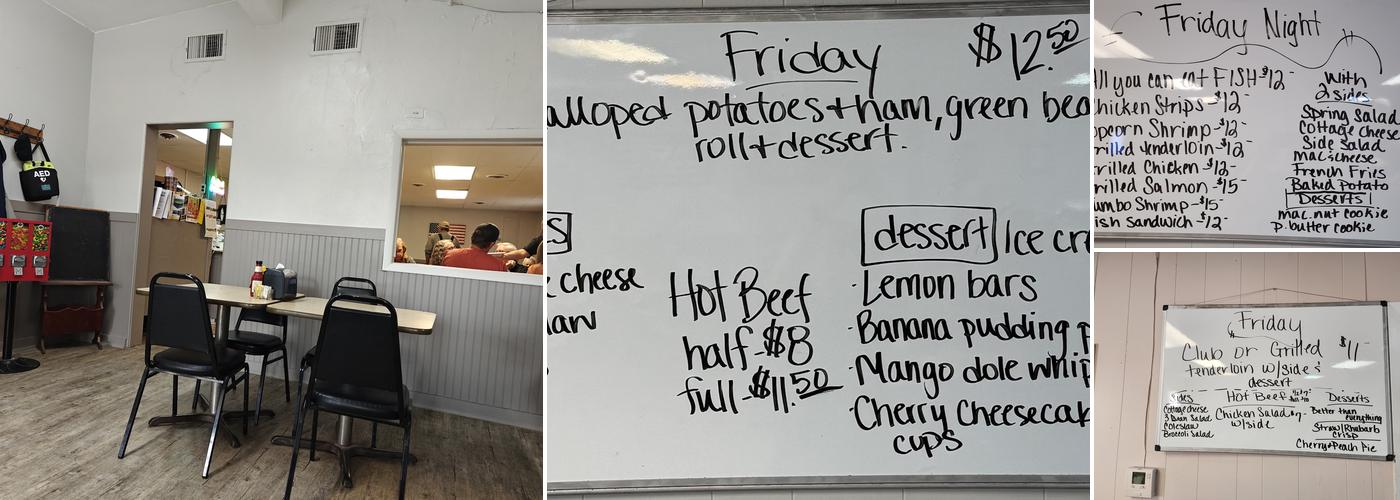 AED
Friday
$12.50
alloped potatoes + ham, green bea
roll + dessert.
s
cheese
law
Hot Beef
half - $8
full - $11.50
dessert
Ice cr
· Lemon bars
· Banana pudding p
· Mango dole whip
· Cherry Cheesecak
cups
Friday Night
All you can eat FISH - $12-
Chicken Strips - $12-
opcorn Shrimp - $12-
rilled tenderloin - $12-
rilled Chicken - $12-
rilled Salmon - $15-
umbo Shrimp - $15-
ish Sandwich - $12-
With
2 sides
Spring Salad
Cottage cheese
Side Salad
mac & cheese
French Fries
Baked Potato
Desserts
mac. nut cookie
P. butter cookie
Friday
$11-
Club or Grilled
tenderloin w/sides
dessert
Sides
Cottage cheese
3 Bean Salad
Coleslaw
Broccoli Salad
Hot Beef
Chicken Salad $7-
w/side
Desserts
Better than
everything
Straw/Rhubarb
Crisp
Cherry & Peach Pie